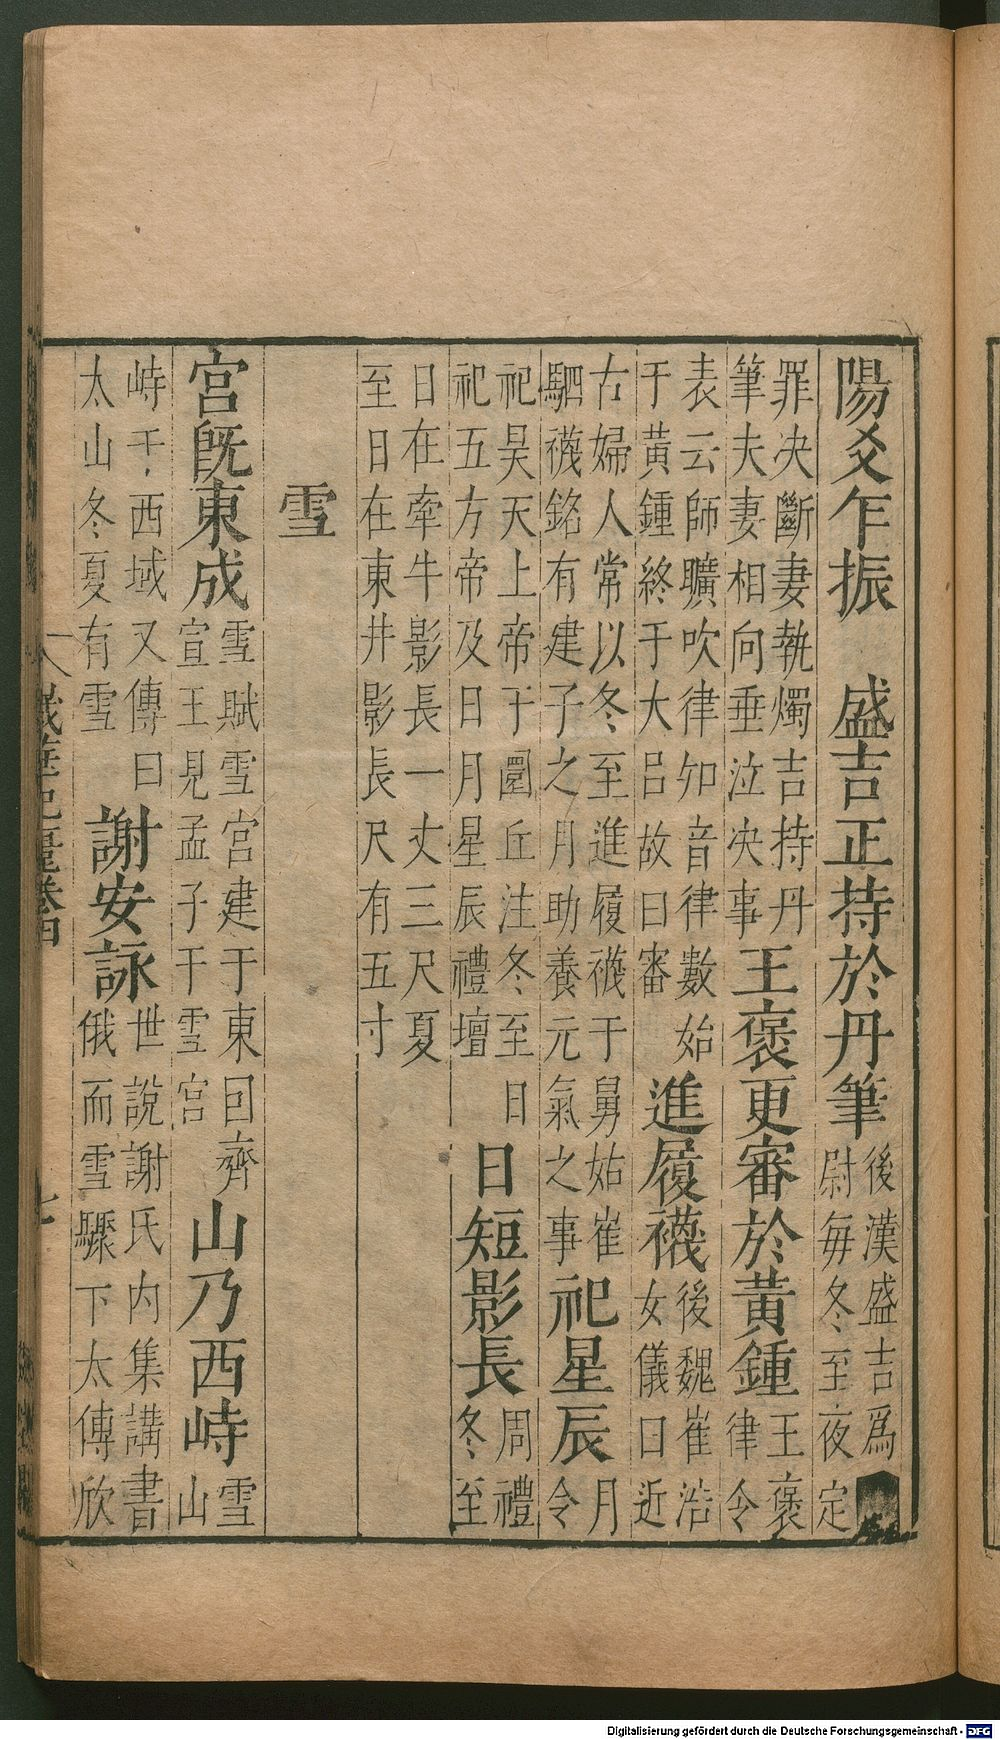 陽爻乍振　盛吉正持於丹筆後漢盛吉爲
尉每冬至夜定
罪决斷妻執燭吉持丹
筆夫妻相向垂泣决事王褒更審於黃鍾王褒
律令
表云師曠吹律知音律數始
于黃鍾終于大呂故曰審進履襪後魏崔浩
女儀曰近
古婦人常以冬至進履襪于舅姑崔
駰襪銘有建子之月助養元氣之事祀星辰月
令
祀昊天上帝于圜丘注冬至日
祀五方帝及日月星辰禮壇日短影長周禮
冬至
日在牽牛影長一丈三尺夏
至日在東井影長尺有五寸
雪
宮旣東成雪賦雪宮建于東囘齊
宣王見孟子于雪宮山乃西峙雪
山
峙于西域又傳曰
太山冬夏有雪謝安詠世說謝氏內集講書
俄而雪驟下太傅欣
卷四
七
Digitalisierung gefördert durch die Deutsche Forschungsgemeinschaft - DFG